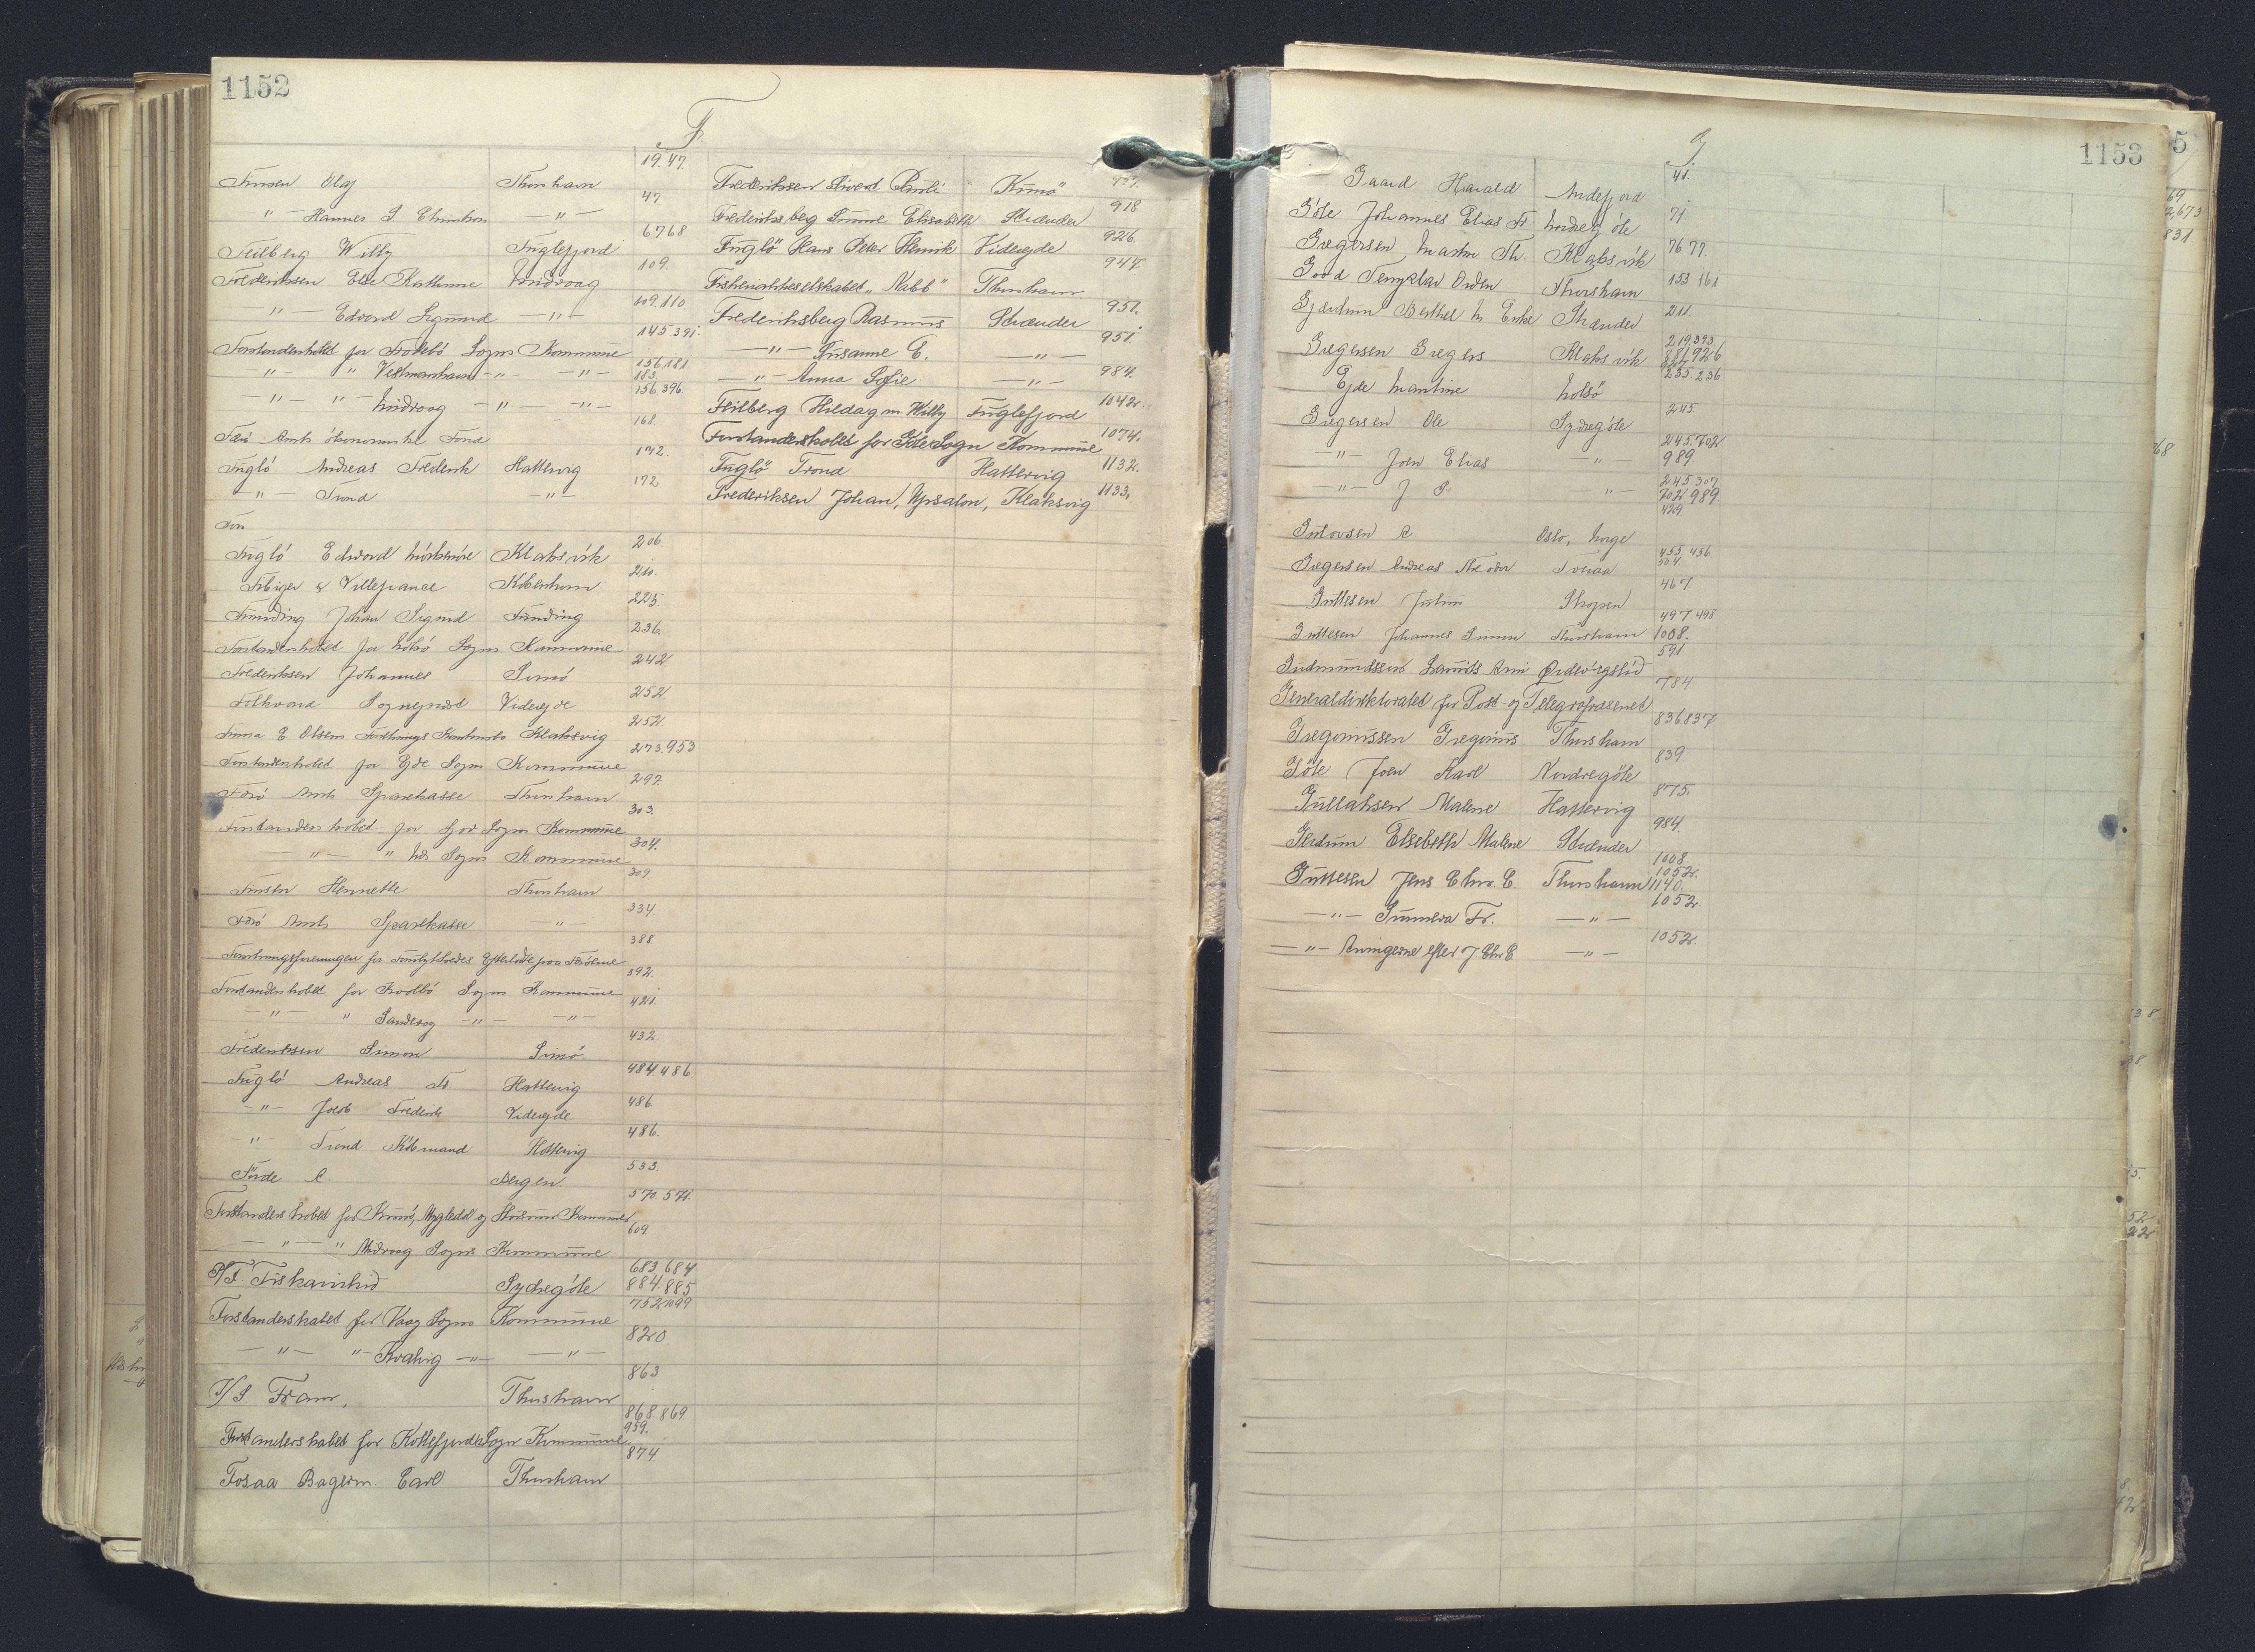 1152
F
Finsen Olaf Thorshavn 19. 47.
—"— Hannes S —"— 47.
Feilberg Willy Fuglefjord 67 68
Frederiksen Else Kathrine Midvaag 109.
—"— Edvard Sigmund —"— 109. 110
Forstanderskabet for Frodebö Sogns Kommune 145 391.
—"— " Vestmanhavn —"— —"— 156. 181. 183.
—"— " Midvaag —"— —"— 156. 396.
Færö Amts ökonomiske Fond 168.
Fuglö Andreas Frederik Hattervig 172.
—"— Trond —"— 172
For
Fuglö Edvard Klaksvik 206
Febiger & Villefrance Köbenhavn 210.
Funding Johan Sigurd Funding 225
Forstanderskabet for Nolsö Sogns Kommune 236.
Frederiksen Johannes Svinö 242
Folkvord Sognepræst Videreide 252.
Firma E Olsens Forretnings Kontrabo Klaksvig 252.
Forstanderskabet for Ejde Sogns Kommune 273. 953
Færö Amts Sparekasse Thorshavn 297.
Forstanderskabet for Hov Sogns Kommune 303.
—"— " Nes Sogns Kommune 304.
Finsen Henriette Thorshavn 309.
Færö Amts Sparekasse —"— 334.
Forsikringsforeningen for Forulykkedes Efterladte paa Færöerne 388.
Forstanderskabet for Kvalbö Sogns Kommune 392.
—"— " Sandevog —"— —"— 421.
Frederiksen Simon Svinö 432.
Fuglö Andreas Fr Hattervig 484. 486
—"— Jacob Frederik Videreide 486.
—"— Trond Köbmand Hattervig 486.
Förde A Bergen. 533.
Forstanderskabet for Kunö, Mygledal og Husum Kommuner 570. 571.
—"— " Midvaag Sogns Kommune 609
P/F. Fiskavirkið Sydregöte 683. 684 884 885
Forstanderskabet for Vaag Sogns Kommune 752. 1099
—"— "— Kvalvig —"— —"— 820.
I/S Fram, Thorshavn 863
Forstanderskabet for Kollefjords Sogns Kommune 868. 869. 959.
Fosaa Bagerm. Carl Thorshavn 874.
Frederiksen Sivert Pauli Kunö" 777.
Frederiksberg Sunne Elisabeth Strænder 918
Fuglö" Hans Peter Henrik Videreide 926.
Fiskeriaktieselskabet „Nabb" Thorshavn 947
Frederiksberg Rasmus Strænder 951.
—"— Susanne E. —"— 951.
—"— Anna Sofie —"— 984.
Feilberg Hildag m. Willy Fuglefjord 1042.
Forstanderskabet for Göte Sogn Kommune 1074.
Fuglö" Trond Hattervig 1132.
Frederiksen Johan, Ypsalon, Klaksvig 1133.
1153
G
Gaard Harald Andefjord 41.
Göte Johannes Elias Fr. Nordregöte 71.
Gregersen Martin Th. Klaksvik 76 77.
Good Templar Orden Thorshavn 153 161
Gjerdum Berthel M Enke Strænder 211.
Gregersen Gregers Klaksvik 219.393 881.926
Ejde Martine Nolsö 235. 236
Gregersen Ole Sydregöte 245
—"— Joen Elias —"— 245. 702 989
—"— J P —"— 245 307 702 989.
Gulovsen A Oslo, Norge 429
Gregersen Andreas Theodor Tveraa 455. 456 504.
Guttesen Julius Skopen 467
Guttesen Johannes Simon Thorshavn 497 498 1008.
Gudmundssen Lauvits Arni Ördavigslid 591
Generaldirektoratet for Post- og Telegrafvæsenet 784
Gregoriussen Gregorius Thorshavn 836 837
Göte Joen Karl Nordregöte 839
Gullaksen Malene Hattervig 875.
Gerdum Elsebeth Malene Strænder 984.
Guttesen Jens Chr. E. Thorshavn 1008 1052. 1140.
—"— Sunneva Fr. —"— 1052.
—"— Arvingerne efter J. Chr E —"— 1052.